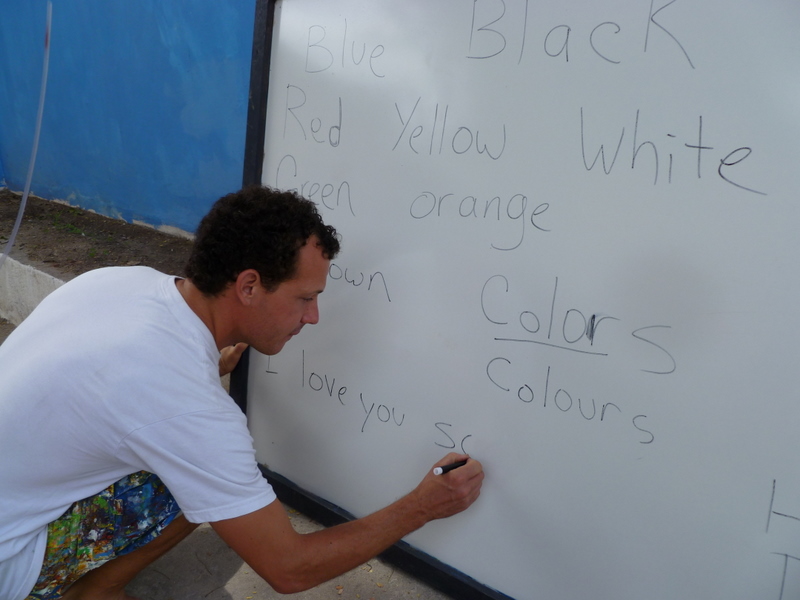 Blue Black
Red Yellow White
Green orange
own
Colors
Colours
I love you so
H
T